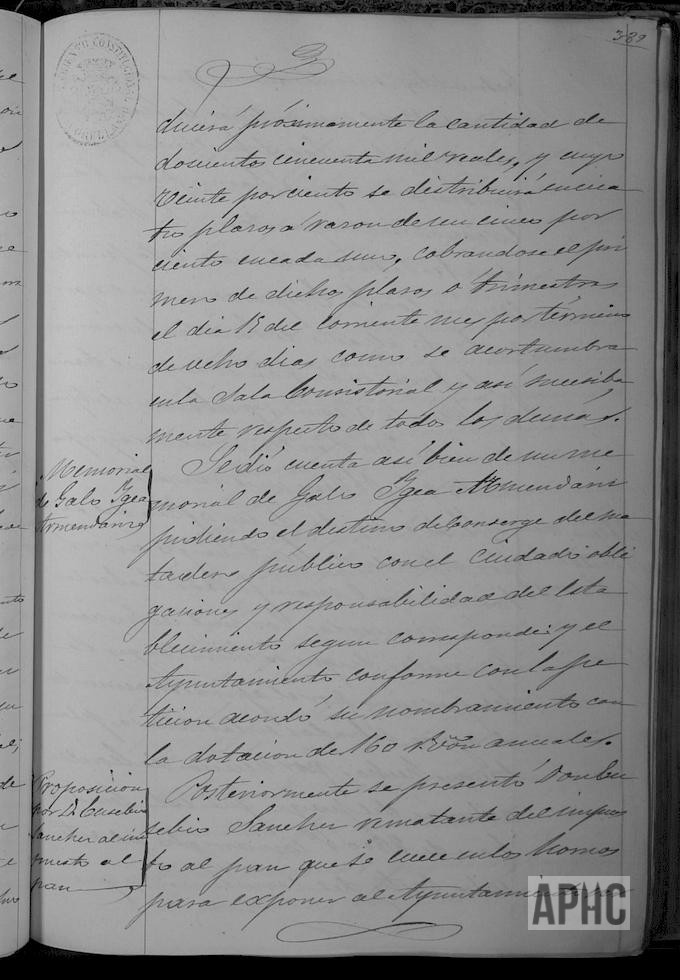 389
ducirá prócsimamente la cantidad de
doscientos cincuenta mil reales, y cuyo
veinte por ciento se distribuirá en cua
tro plasos á rason de un cinco por
ciento en cada uno, cobrandose el pri
mero de dichos plasos ó trimestres
el dia 15 del corriente mes por término
de ocho dias como se acostumbra
en la Sala Consistorial y así succesiba
mente respecto de todos los demás.
Memorial
de Galo Ygea
Armendariz
Se dió cuenta así bien de un me
morial de Galo Ygea Armendáriz
pidiendo el destino de Conserge del ma
tadero público con el cuidado obli
gaciones y responsabilidad del Esta
blecimiento segun corresponde: y el
Ayuntamiento conforme con la pe
ticion acordó su nombramiento con
la dotacion de 160 r. von anuales.
Proposicion
por Dn Eusebio
Sancher al im
puesto al
pan
Posteriormente se presentó Don Eu
sebio Sancher rematante del impues
to al pan que se cuece en los hornos
para exponer al Ayuntamiento
APHC